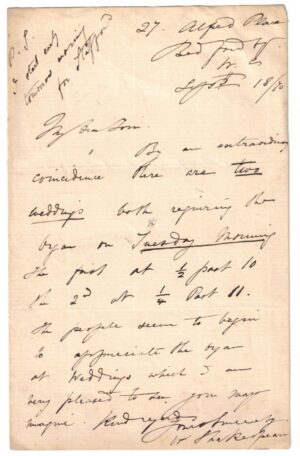 P.S.
I start early
tomorrow morning
for
27. Alfred Place
Bedford Sq
W.C
Sept 18/70
My dear
By an extraordinary
coincidence there are two
weddings both requiring the
organ on Tuesday Morning
the first at ½ past 10
the 2d at ¼ Past 11.
The people seem to begin
to appreciate the organ
at Weddings which I am
very pleased to see you may
imagine. Kind regards
Yours sincerely
W Shakespeare